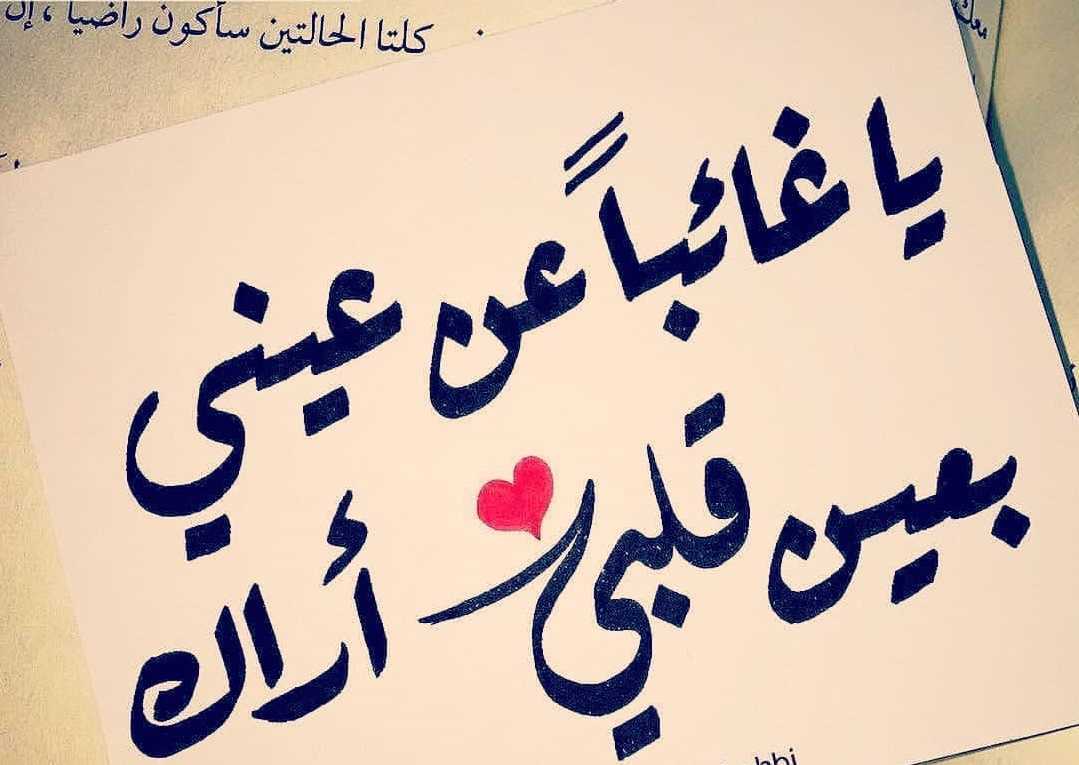 كلتا الحالتين سأكون راضياً ، إن
معك
يا غائباً عن عيني
بعين قلبي أراك